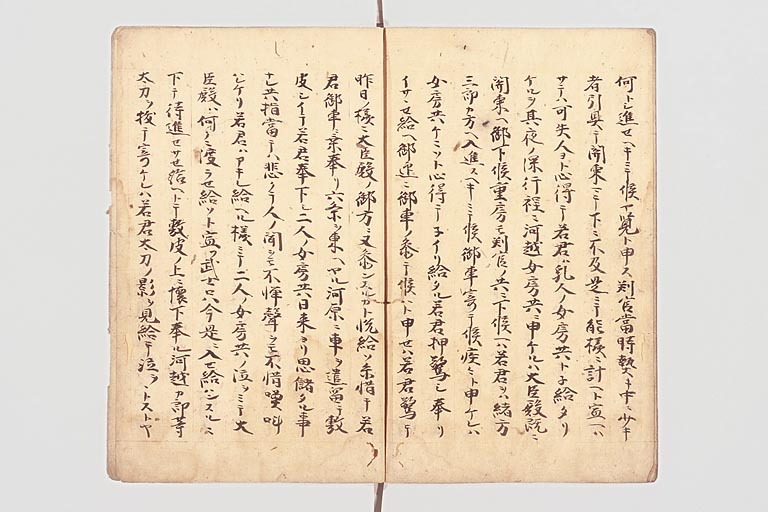 何ト進セヘキニテ候ヤ覧ト申ス判官當時熱キ中ニ少キ
者引具テ関東ニテ下ニ不及是ニテ能様ニ計ヘト宣ヘハ
サテハ可失人ヨト心得テ若君ハ乳人ノ女房共ト子給タリ
ケルヲ其夜ノ深行程ニ河越女房共ニ申ケルハ大臣殿既ニ
関東ヘ御下候重房モ判官ノ共ニ下候ヘハ若君ヲハ緒方
三郎カ方ヘ入進スヘキニテ候御車寄テ候疾ミト申ケレハ
女房共ケニソト心得テ子イリ給タル若君押驚シ奉リ
イサセ給ヘ御迎ニ御車ノ参テ候ハト申セハ若君驚テ
昨日ノ様ニ大臣殿ノ御方ニ又参ンスルカト悦給ソ糸惜キ若
君御車ニ乗奉リ六条ヲ東ヘヤル河原ニ車ヲ遣留テ敷
皮シイテ若君奉下シ二人ノ女房共日来ヨリ思儲タル事
ナレ共指當テハ悲クテ人ノ聞ヲモ不憚聲ヲモ不惜喚叫
ハレケリ若君ハアキレ給ヘル様ニテ二人ノ女房共ノ泣ヲミテ大
臣殿ハ何クニ渡ラセ給ソト宣フ武士只今是ニ入セ給ハンスルニ
下テ待進セサセ給ヘトテ敷皮ノ上ニ懐下奉ル河越カ郎等
太刀ヲ抜テ寄ケレハ若君太刀ノ影ヲ見給テ泣ヲトストヤ